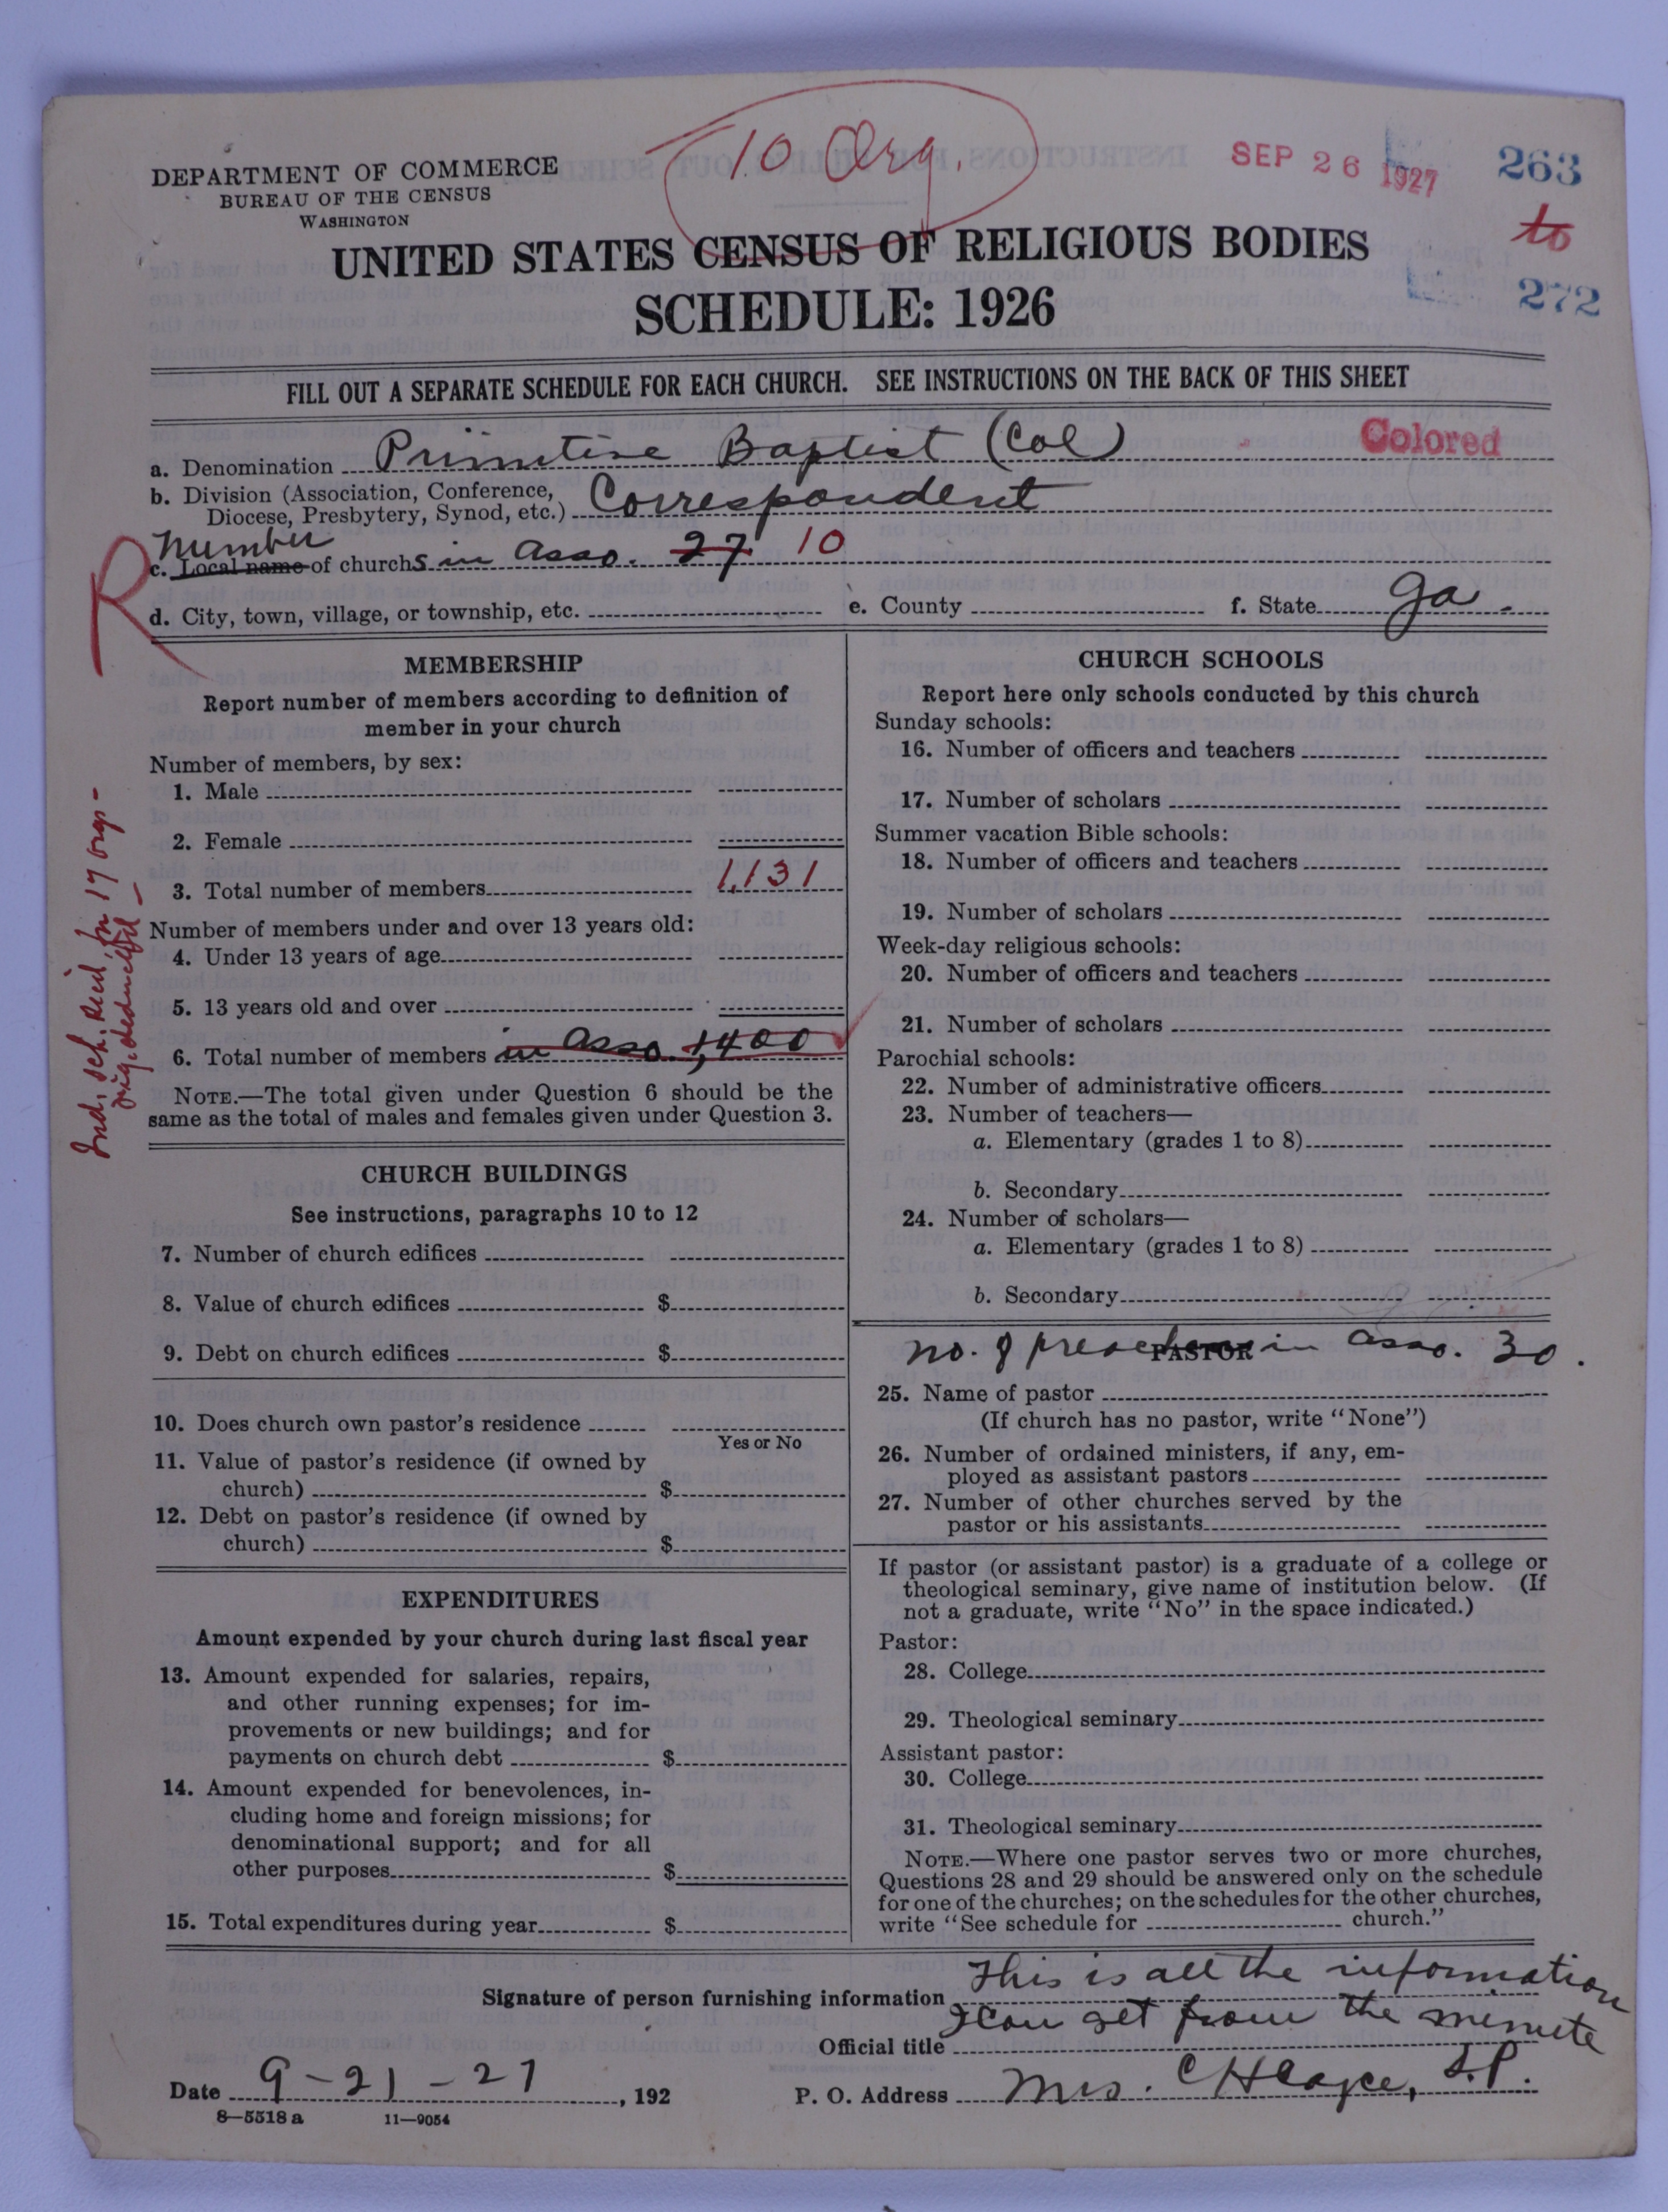 10 Org.
SEP 26 1927
263
to
272
DEPARTMENT OF COMMERCE
BUREAU OF THE CENSUS
WASHINGTON
UNITED STATES CENSUS OF RELIGIOUS BODIES
SCHEDULE: 1926
FILL OUT A SEPARATE SCHEDULE FOR EACH CHURCH. SEE INSTRUCTIONS ON THE BACK OF THIS SHEET
a. Denomination Primitive Baptist (Col)
Colored
b. Division (Association, Conference,
Diocese, Presbytery, Synod, etc.) Correspondent
Number
R
c. Local name of churchs in asso. 27 10
d. City, town, village, or township, etc. e. County f. State Ga.
MEMBERSHIP
Report number of members according to definition of
member in your church
Number of members, by sex:
1. Male
2. Female
3. Total number of members 1,131
Number of members under and over 13 years old:
4. Under 13 years of age
5. 13 years old and over
6. Total number of members in asso. 1,400
NOTE.—The total given under Question 6 should be the
same as the total of males and females given under Question 3.
Ind. sch. Rec'd. for 17 orgs -
CHURCH BUILDINGS
See instructions, paragraphs 10 to 12
7. Number of church edifices
8. Value of church edifices $
9. Debt on church edifices $
10. Does church own pastor's residence
Yes or No
11. Value of pastor's residence (if owned by
church) $
12. Debt on pastor's residence (if owned by
church) $
EXPENDITURES
Amount expended by your church during last fiscal year
13. Amount expended for salaries, repairs,
and other running expenses; for im-
provements or new buildings; and for
payments on church debt $
14. Amount expended for benevolences, in-
cluding home and foreign missions; for
denominational support; and for all
other purposes $
15. Total expenditures during year $
CHURCH SCHOOLS
Report here only schools conducted by this church
Sunday schools:
16. Number of officers and teachers
17. Number of scholars
Summer vacation Bible schools:
18. Number of officers and teachers
19. Number of scholars
Week-day religious schools:
20. Number of officers and teachers
21. Number of scholars
Parochial schools:
22. Number of administrative officers
23. Number of teachers—
a. Elementary (grades 1 to 8)
b. Secondary
24. Number of scholars—
a. Elementary (grades 1 to 8)
b. Secondary
no. of preachers in asso. 30.
PASTOR
25. Name of pastor
(If church has no pastor, write "None")
26. Number of ordained ministers, if any, em-
ployed as assistant pastors
27. Number of other churches served by the
pastor or his assistants
If pastor (or assistant pastor) is a graduate of a college or
theological seminary, give name of institution below. (If
not a graduate, write "No" in the space indicated.)
Pastor:
28. College
29. Theological seminary
Assistant pastor:
30. College
31. Theological seminary
NOTE.—Where one pastor serves two or more churches,
Questions 28 and 29 should be answered only on the schedule
for one of the churches; on the schedules for the other churches,
write "See schedule for church."
This is all the information
Signature of person furnishing information
I can get from the minute
Official title
Date 9-21-27, 192
P. O. Address Mrs. S.P.
8—5518 a 11—9054